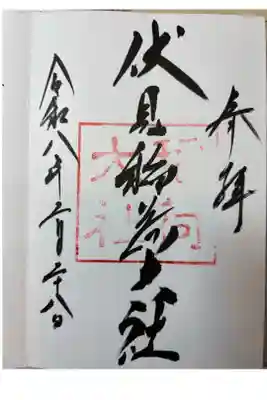 奉拝
伏見稲荷大社
令和八年二月二十八日